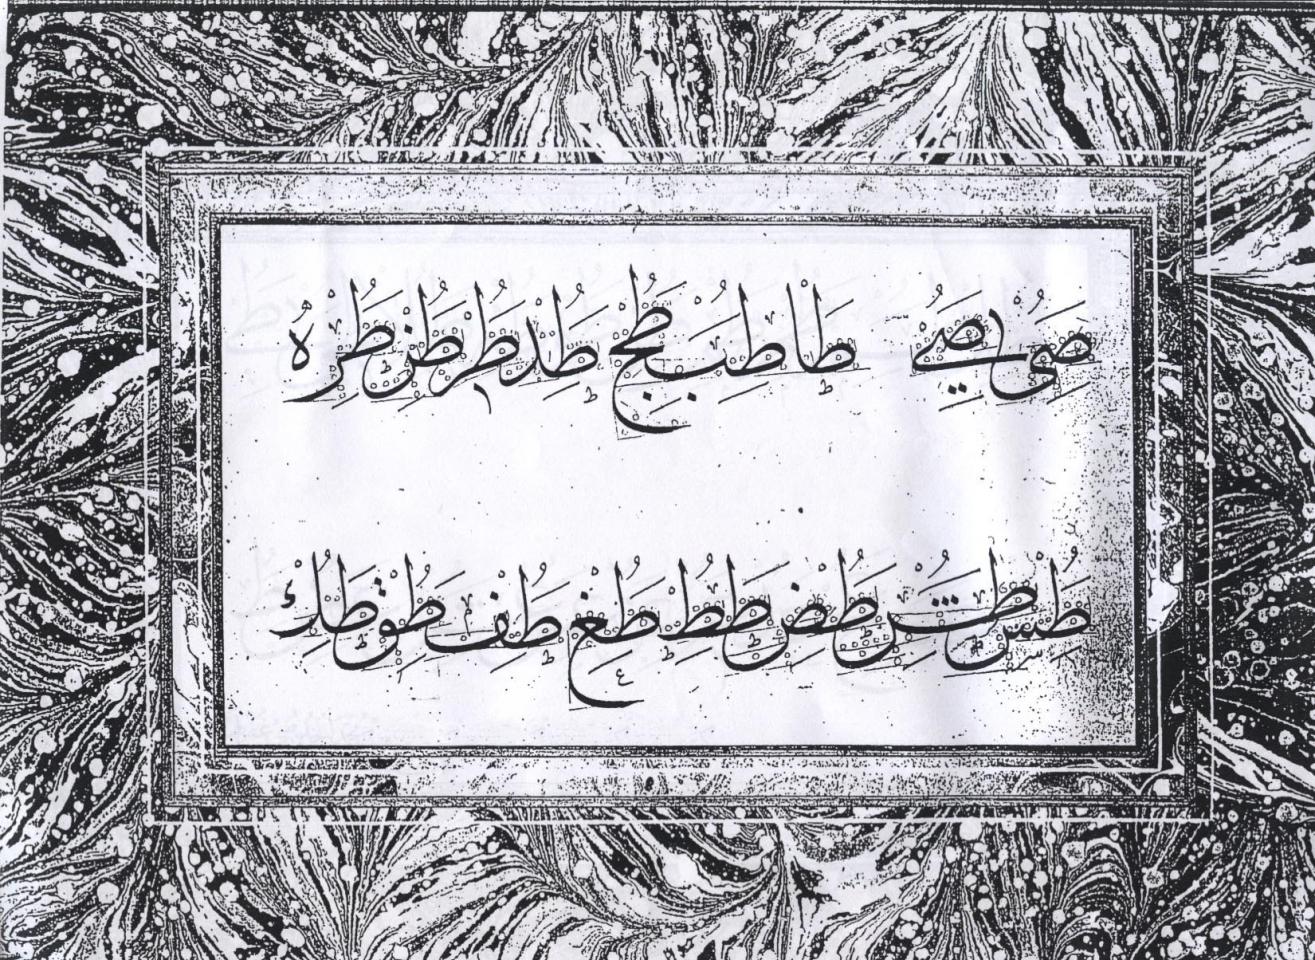 صى صے طا طب طج طد طر طز طره
طس طش طص طض طط طغ طف طق طك